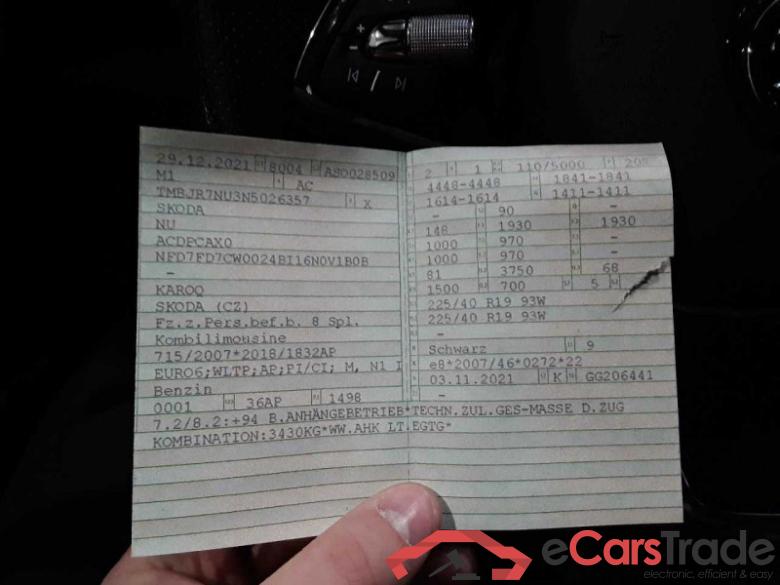 29.12.2021 8004 AS0028509
M1 AC
TMBJR7NU3N5026357 X
SKODA
NU
ACDPCAX0
NFD7FD7CW0024BI16N0V1B0B
-
KAROQ
SKODA (CZ)
Fz.z.Pers.bef.b. 8 Spl.
Kombilimousine
715/2007*2018/1832AP
EURO6;WLTP;AP;PI/CI; M, N1 I
Benzin
0001 36AP 1498
2 1 110/5000
4448-4448 1841-1841
1614-1614 1411-1411
- 90 -
148 1930 1930
1000 970 -
1000 970 -
81 3750 68
1500 700 5
225/40 R19 93W
225/40 R19 93W
-
Schwarz 9
e8*2007/46*0272*22
03.11.2021 K GG206441
-
7.2/8.2:+94 B.ANHÄNGEBETRIEB*TECHN.ZUL.GES-MASSE D.ZUG
KOMBINATION:3430KG*WW.AHK LT.EGTG*
eCarsTrade
electronic, efficient & easy